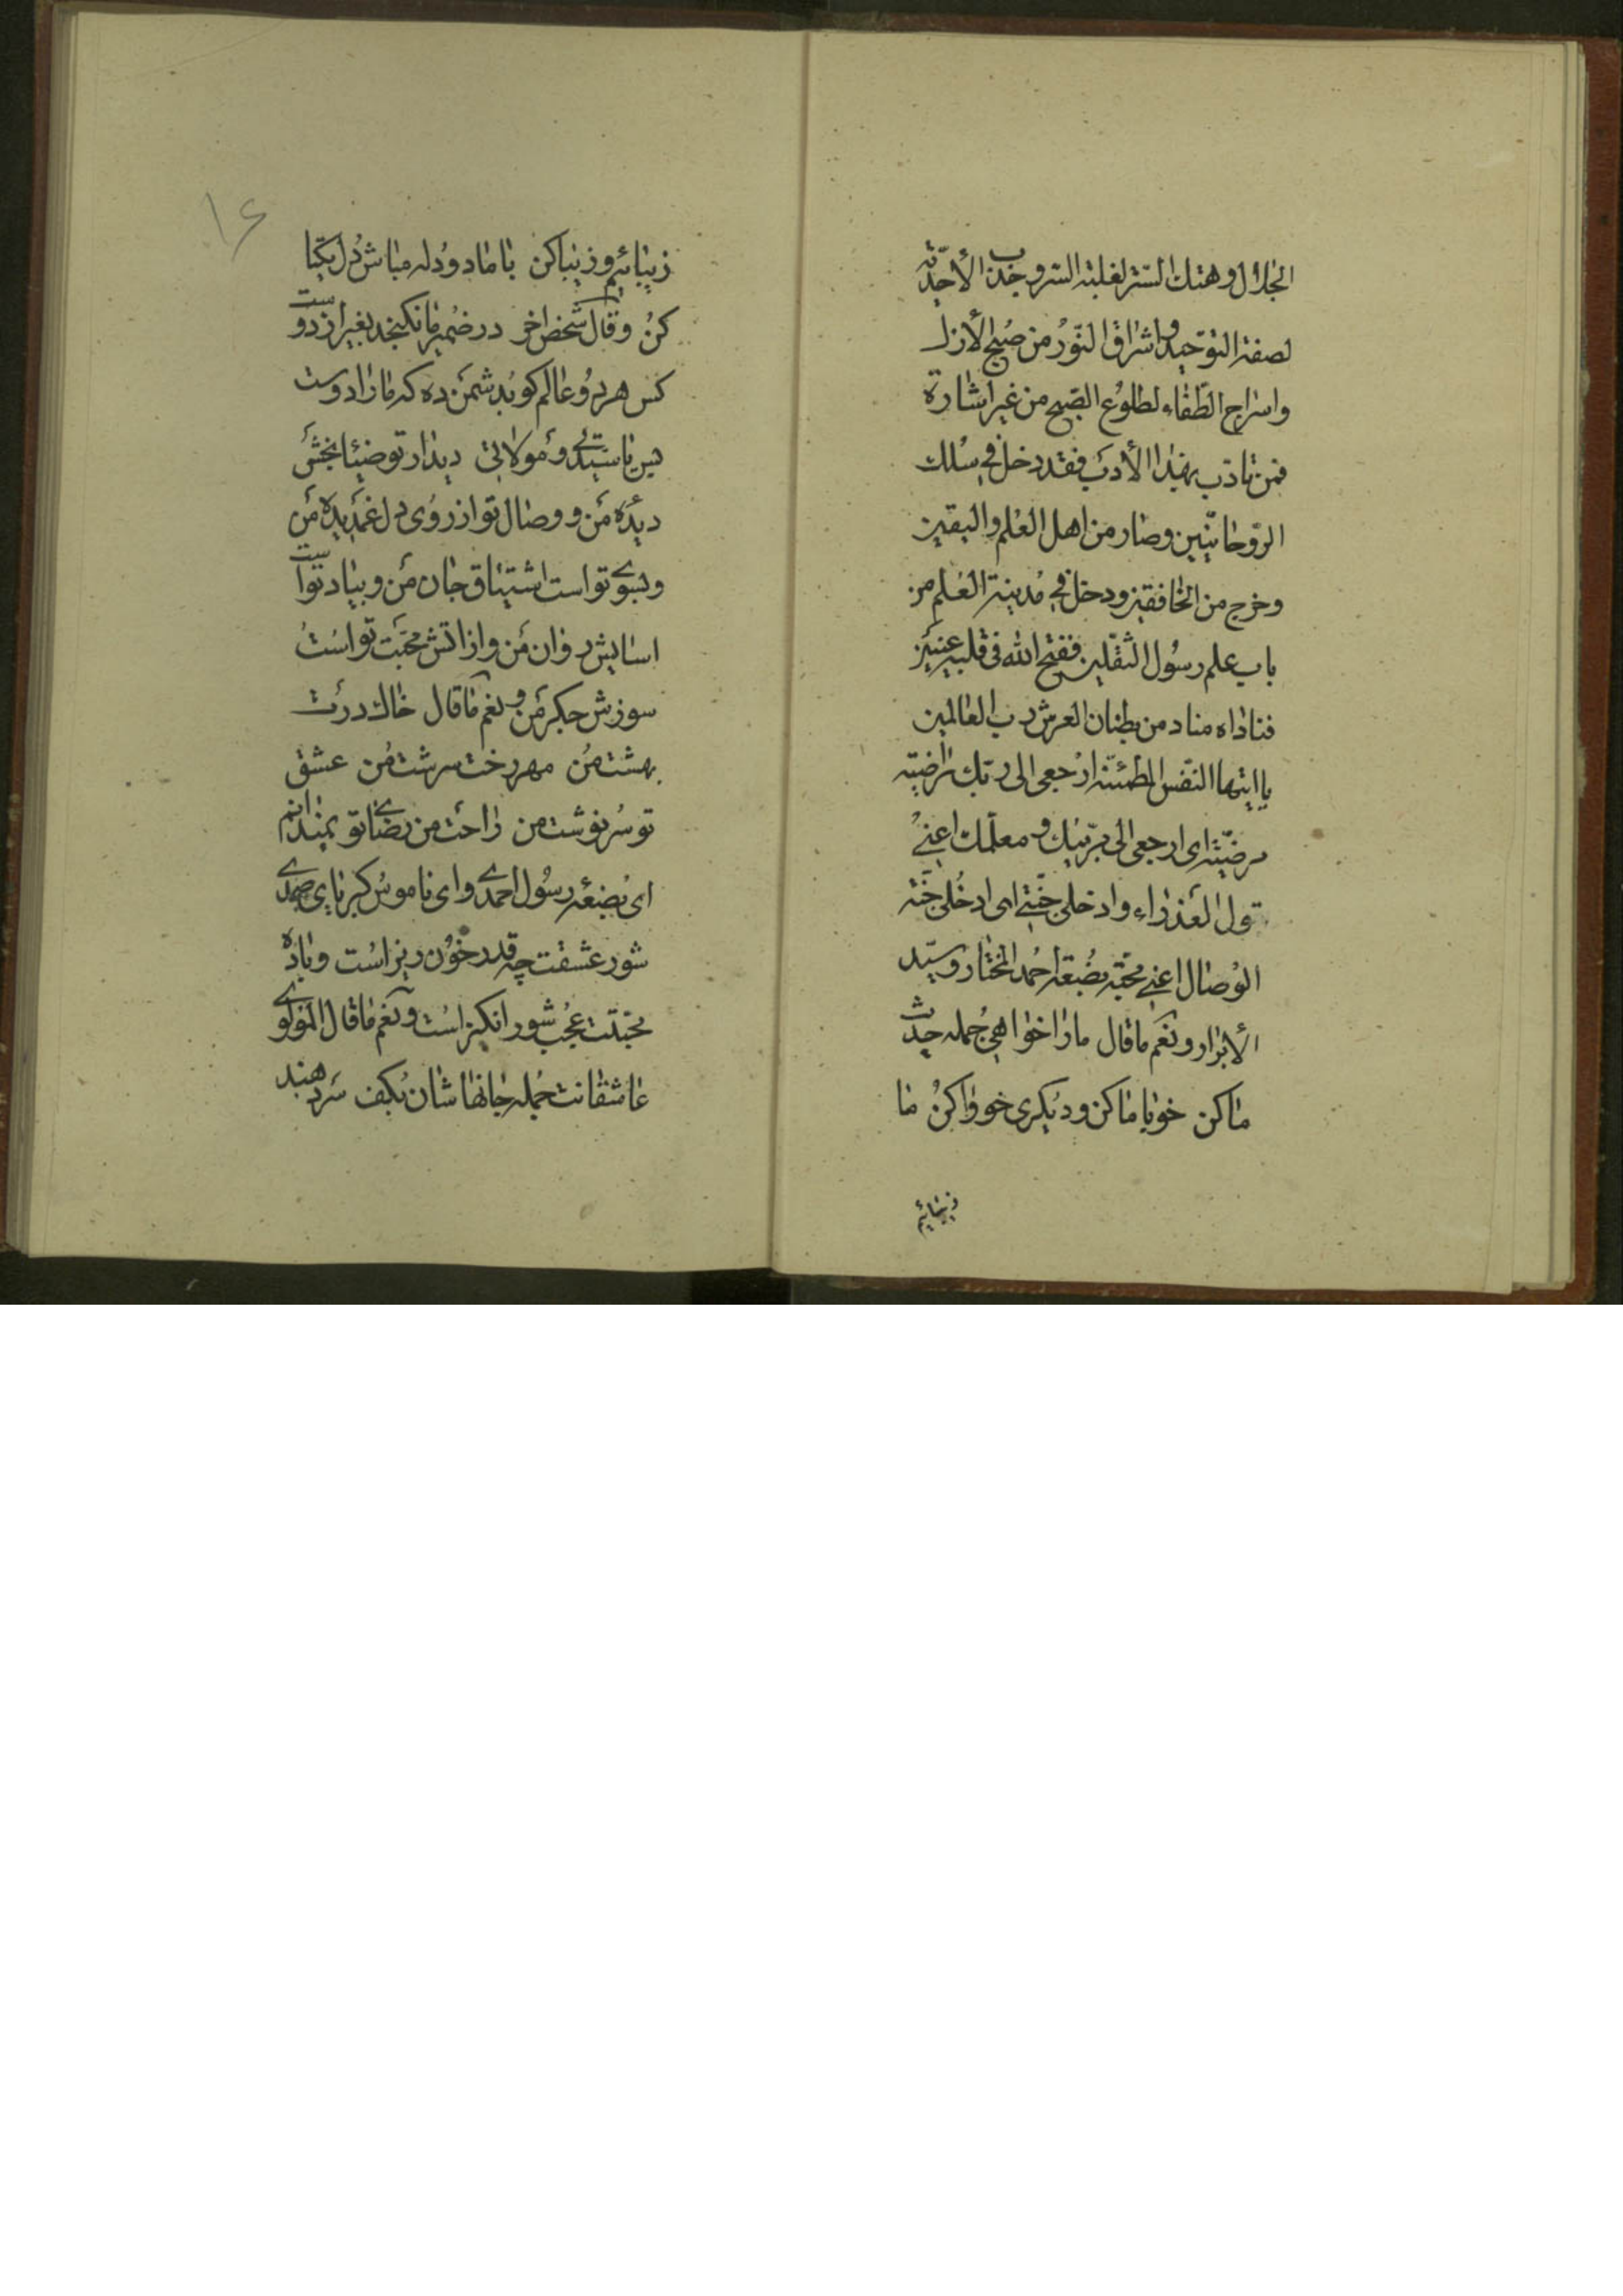 الجلال و هتك الستر لغلبة السر و جذب الأحدیّة
لصفة التوحید و اشراق النّور من صُبح الأزل
و اسراج الطفاء لطلوع الصّبح من غیر اشارة
فمن تادّب بهذا الأدب فقد دخل فی سلك
الرّوحانیّین و صار من اهل العلم و الیقین
و خرج من الخافقین و دخل فی مدینة العلم من
باب علم رسول الثقلین ففتح الله فی قلبه عینین
فناداه مناد من بطنان العرش رب العالمین
یا ایتها النّفس المطمئنّه ارجعی الی ربّك راضیّه
مرضیّة ای ارجعی الی مربّیك و معلّمك اعنی
بتول العذراء و ادخلی جنّتی ای ادخلی جنّة
الوصال اعنی محبّة بضعة احمد المختار و سیّد
الأبرار و نعم ما قال مارا خواهی جمله حدیث
ما کن خو با ما کن و دیکری خو وا کن ما
زیبائیم
۱۶
زیبائیم و زیبا کن با ما دو دله مباش دل یکتا
کن و قال شخص اخر در ضمیر ما نکنجد بغیر از دوست
کس هر دو عالم کو بدشمن ده که ما را دوست
بس یا سیّدتی و مولاتی دیدار تو ضیا بخش
دیده من و وصال تو ارزوی دل غمدیده من
و بسوی تو است اشتیاق جان من و بیاد تو است
اسایش روان من و از اتش محبّت تو است
سوزش جکر من و نعم ما قال خاك درت
بهشت من مهر رخت سرشت من عشق
تو سرنوشت من راحت من رضای تو نمیدانم
ای بضعه رسول احمدی و ای ناموس کبریای صمدی
شور عشقت چه قدر خون ریز است و باده
محبّتت عجب شور انکیز است و نعم ما قال المولوی
عاشقانت جمله جانها شان بکف سر دهند